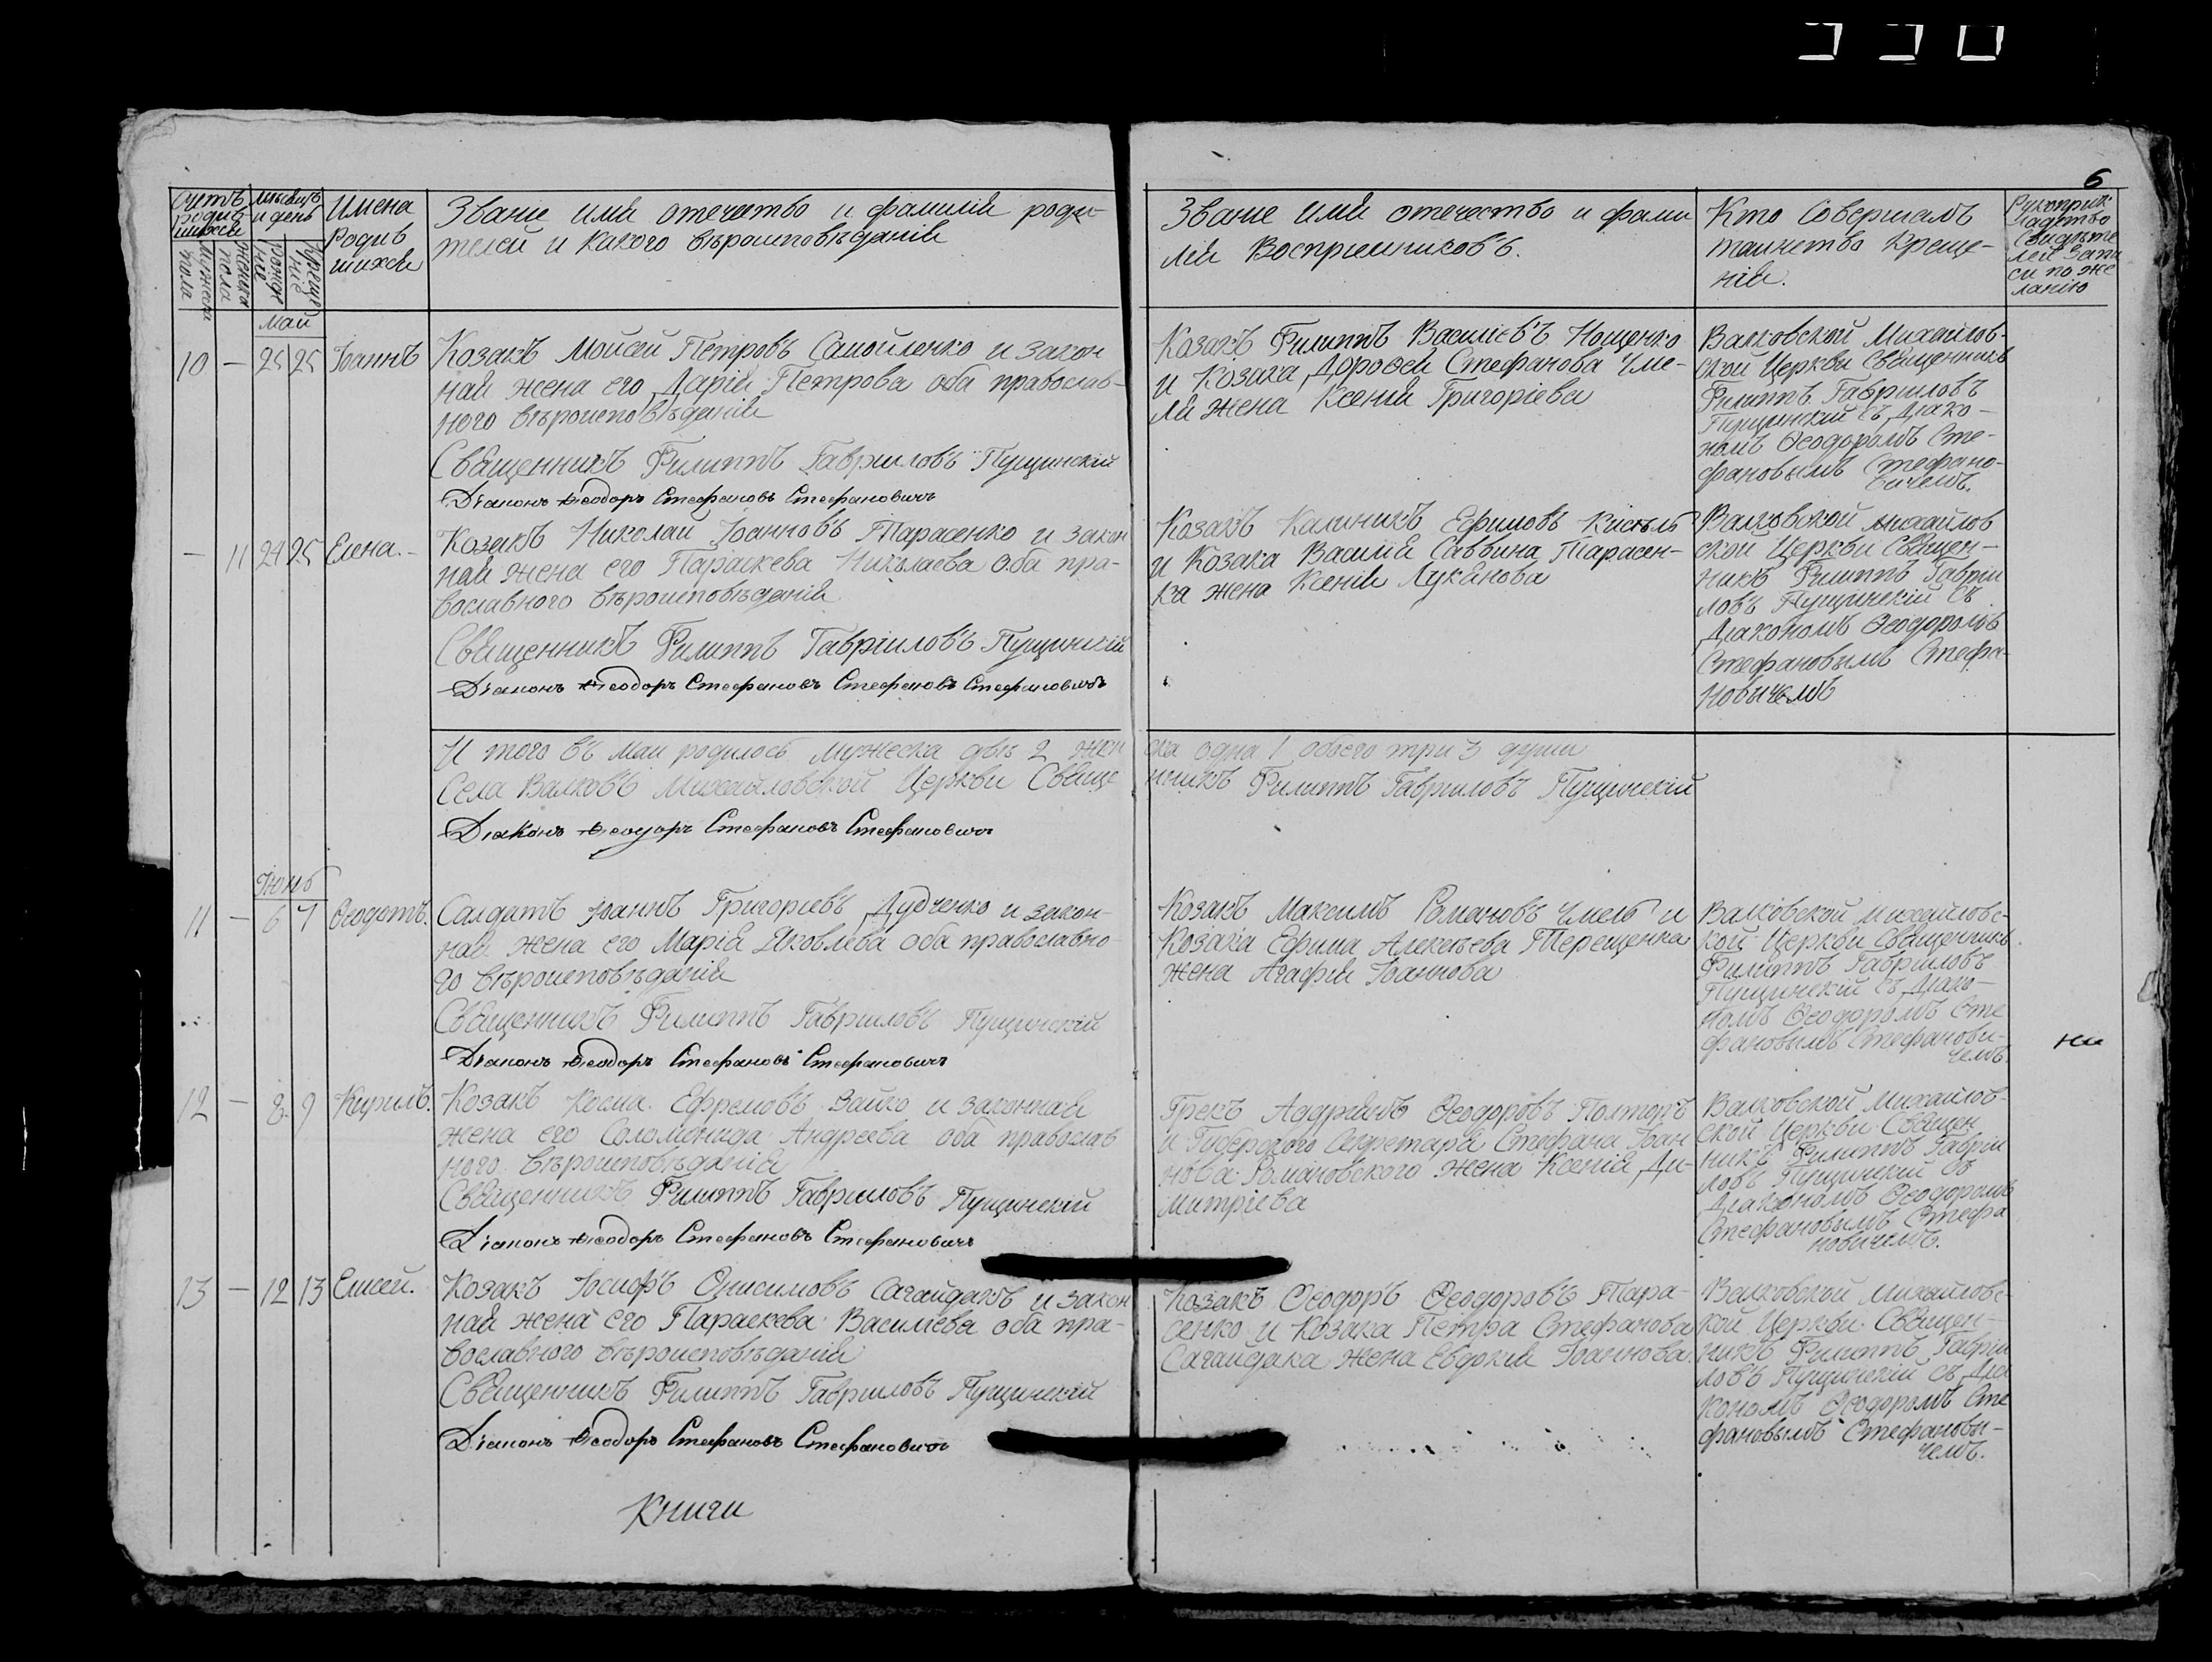 6
Счетъ родив шихся
Мѣсяцъ и день
Имена Родив шихся
Званіе имя отечество и фамилія роди-
телей и какого вѣроисповѣданія
Званіе имя отечество и фами
лія Воспріемниковъ.
Кто Совершалъ
таинство креще-
нія.
Рукоприк
ладство
Свидѣте
лей запи
си по же
ланію
Мужеска пола
Женска пола
Рожде ніе
Креще ніе
Май
10 — 25 25 Іоаннъ
Козакъ Моисей Петровъ Самойленко и закон
ная жена его Дарія Петрова оба православ-
ного вѣроисповѣданія
Священникъ Филиппъ Гавріиловъ Пущинскій
Діаконъ Ѳеодоръ Стефановъ Стефановичъ
Козакъ Филиппъ Василіевъ Нощенко
и Козака Дорофея Стефанова Чме-
ля жена Ксенія Григоріева
Валковской Михайлов-
ской Церкви Священникъ
Филиппъ Гавріиловъ
Пущинскій съ Діако-
номъ Ѳеодоромъ Сте-
фановымъ Стефано-
вичемъ.
— 11 24 25 Елена.
Козакъ Николай Іоанновъ Тарасенко и закон
ная жена его Параскева Николаева оба пра-
вославного вѣроисповѣданія
Священникъ Филиппъ Гавріиловъ Пущинскій
Діаконъ Ѳеодоръ Стефановъ Стефановъ Стефановичъ
Козакъ Калиникъ Ефимовъ Кисѣль
и Козака Василія Саввина Тарасен-
ка жена Ксенія Лукянова
Валковской Михайлов
ской Церкви Священ-
никъ Филиппъ Гавріи
ловъ Пущинскій съ
Діакономъ Ѳеодоромъ
Стефановымъ Стефа-
новичемъ
И того въ маи родилось мужеска двѣ 2 жен
ска одна 1 обоего три 3 души
Села Валковъ Михайловской Церкви Свяще
нникъ Филиппъ Гавріиловъ Пущинскій
Діаконъ Ѳеодоръ Стефановъ Стефановичъ
Июнь
11 — 6 7 Ѳеодотъ.
Салдатъ Іоаннъ Григоріевъ Дудченко и закон-
ная жена его Марія Яковлева оба православно-
го вѣроисповѣданія
Священникъ Филиппъ Гавріиловъ Пущинскій
Діаконъ Ѳеодоръ Стефановъ Стефановичъ
Козакъ Максимъ Романовъ Чмель и
Козака Ефима Алексѣева Терещенка
жена Агафія Іоаннова
Валковской Михайловс-
кой Церкви Священникъ
Филиппъ Гавріиловъ
Пущинскій съ Діако-
номъ Ѳеодоромъ Сте
фановымъ Стефанови-
чемъ.
12 — 8 9 Кирилъ.
Козакъ Косма Ефремовъ Зайко и законная
жена его Соломонида Андреева оба православ
ного вѣроисповѣданія
Священникъ Филиппъ Гавріиловъ Пущинскій
Діаконъ Ѳеодоръ Стефановъ Стефановичъ
Грекъ Ѳеодоровъ
и Секретаря Стефана Іоан
нова Романовского жена Ксенія Ди-
митріева
Валковской Михайлов-
ской Церкви Священ
никъ Филиппъ Гавріи
ловъ Пущинскій съ
Діакономъ Ѳеодоромъ
Стефановымъ Стефа
новичемъ.
13 — 12 13 Елисей.
Козакъ Іосифъ Онисимовъ Сагайдакъ и закон
ная жена его Параскева Василіева оба пра-
вославного вѣроисповѣданія
Священникъ Филиппъ Гавріиловъ Пущинскій
Діаконъ Ѳеодоръ Стефановъ Стефановичъ
Козакъ Ѳеодоръ Ѳеодоровъ Тара-
сенко и Козака Петра Стефанова
Сагайдака жена Евдокія Іоаннова.
Валковской Михайловс-
кой Церкви Священ-
никъ Филиппъ Гавріи
ловъ Пущинскій съ Діа
кономъ Ѳеодоромъ Сте
фановымъ Стефанови-
чемъ.
Книги